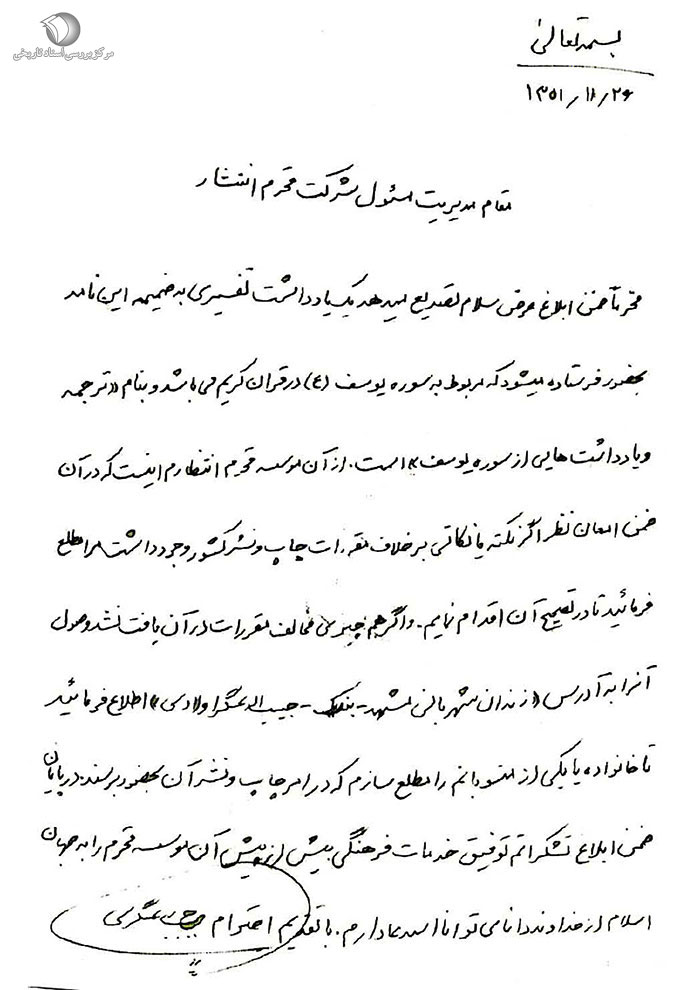 مرکز بررسی اسناد تاریخی
بسمه تعالی
۱۳۵۱/۱۱/۲۶
مقام مدیریت مسئول شرکت محترم انتشار
محترماً ضمن ابلاغ عرض سلام تصدیع میدهد یک یادداشت تفسیری به ضمیمه این نامه
بحضور فرستاده میشود که مربوط به سوره یوسف (ع) در قرآن کریم می باشد و بنام «ترجمه
و یادداشت هایی از سوره یوسف» است. از آن موسسه محترم انتظارم اینست که در آن
ضمن امعان نظر اگر نکته یا نکاتی برخلاف مقررات چاپ و نشر کشور وجود داشت مرا مطلع
فرمائید تا در تصحیح آن اقدام نمایم. و اگر هم چیزی مخالف مقررات در آن یافت نشد وصول
آنرا به آدرس «زندان شهربانی مشهد - حبیب اله عسگراولادی» اطلاع فرمائید
تا خانواده یا یکی از منسوبانم را مطلع سازم که در امر چاپ و نشر آن بحضور برسند. در پایان
ضمن ابلاغ تشکراتم توفیق خدمات فرهنگی بیش از پیش آن موسسه محترم را به جهان
اسلام از خداوند دانای توانا استدعا دارم. با تقدیم احترام عسگری